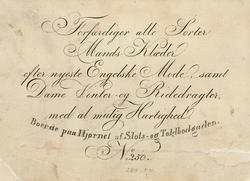 Forfærdiger alle Sorter
Mands Klæder
efter nyeste Engelske Mode, samt
Dame Vinter- og Ridedragter,
med al mulig Hurtighed.
Boende paa Hjørnet af Slots- og Toldbodgaden.
No. 250.